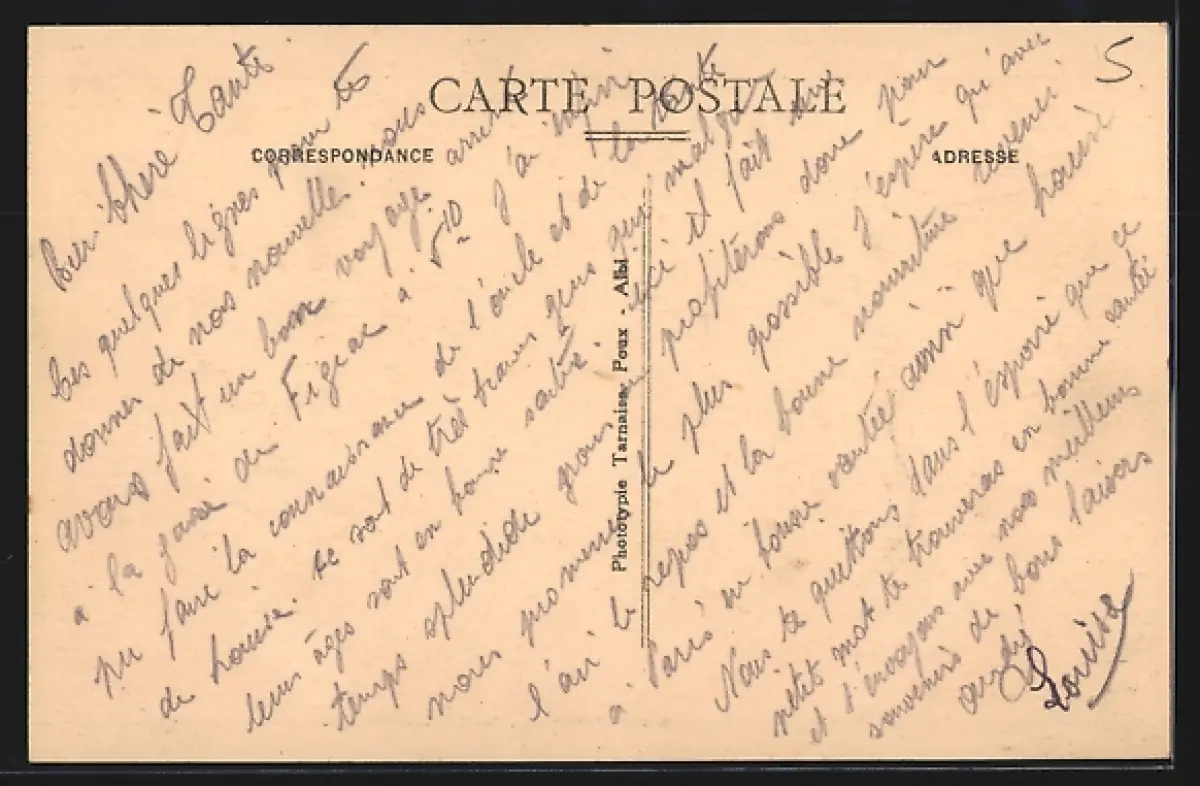 CARTE POSTALE
CORRESPONDANCE
ADRESSE
5
Photot­ypie Tarnaise Poux - Albi
Bien Chère Tante
Ces quelques lignes pour te
donner de nos nouvelle. nous
avons fait un bon voyage
à la gare de Figeac à 5-10 J'ai enfin
pu faire la connaissance de l'oncle et de la tante
de Louise. ce sont de très braves gens qui malgré
leurs âges sont en bonne santé. ici il fait un
temps splendide nous en profiterons donc pour
nous promener le plus possible J'espère qu'avec
l'air le repos et la bonne nourriture revenir
à Paris en bonne santée ainsi que Louise
Nous te quittons dans l'espoire que ce
petit mot te trouveras en bonne santée
et t'envoyons avec nos meilleurs
souvenirs de bons baisers
André
Louise